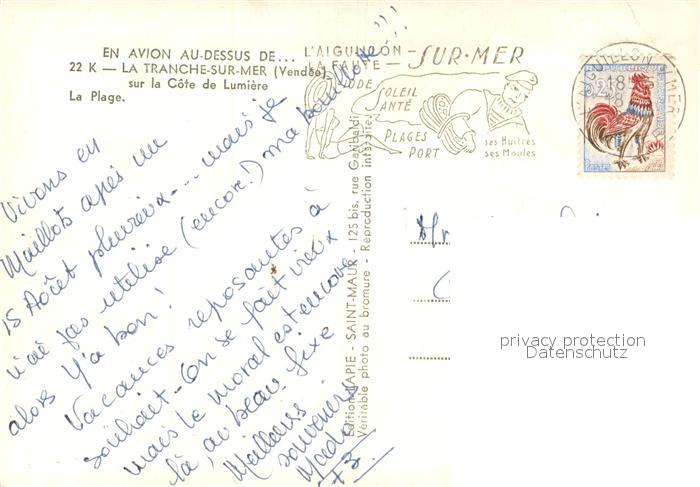 EN AVION AU-DESSUS DE...
22 K — LA TRANCHE-SUR-MER (Vendée)
sur la Côte de Lumière
La Plage.
L'AIGUILLON - SUR-MER
LA FAUTE -
SOLEIL
SANTÉ
PLAGES
PORT
ses Huîtres
ses Moules
Vivons en
Maillots après un
15 Août pluvieux... mais je
n'ai pas utilisé (encore!) ma bouillotte!!!
alors y'a bon!
Vacances reposantes à
souhait - On se fait vieux
mais le moral est encore
là, au beau fixe
Meilleurs
souvenirs
Editions CHAPIE - SAINT-MAUR - 125 bis, rue Garibaldi
Véritable photo au bromure - Reproduction interdite.
privacy protection
Datenschutz